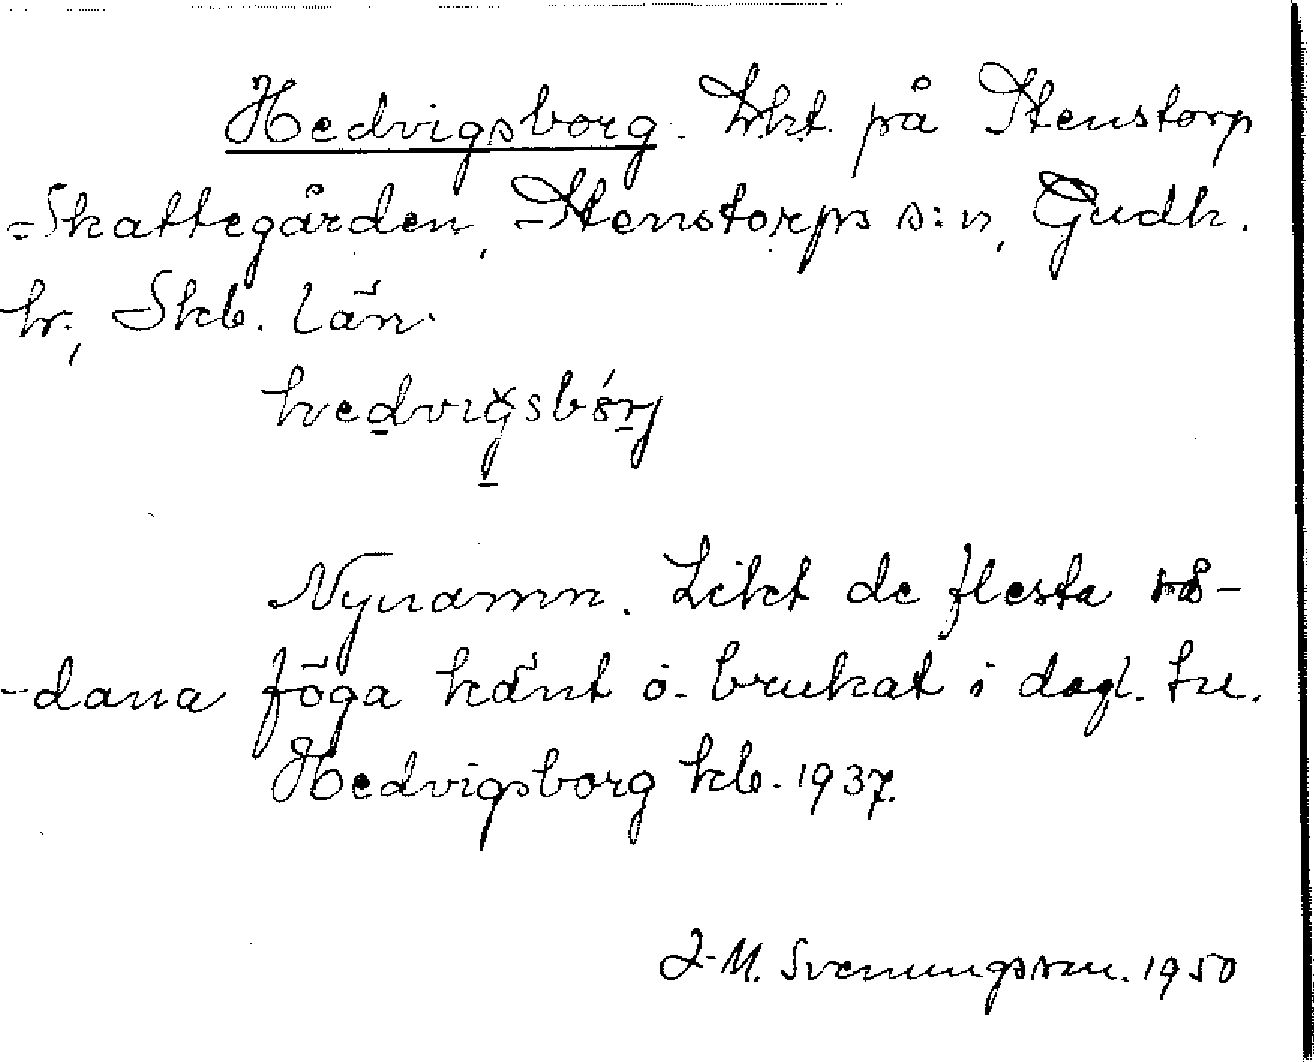 Hedvigsborg. Lht. på Stenstorp
-Skattegården, Stenstorps s:n, Gudh.
hr, Skb. län.
hedvigsbórj
Nynamn. Likt de flesta så-
-dana föga känt o. brukat i dagl. tu.
Hedvigsborg kb. 1937.
J-M. Svenungsson. 1950